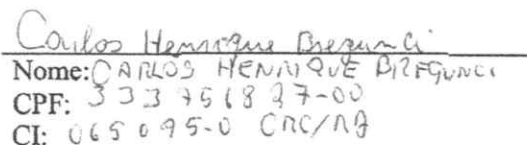 Carlos Henrique Bregunci
Nome: CARLOS HENRIQUE BREGUNCI
CPF: 333756827-00
CI: 065095-0 CRC/RJ